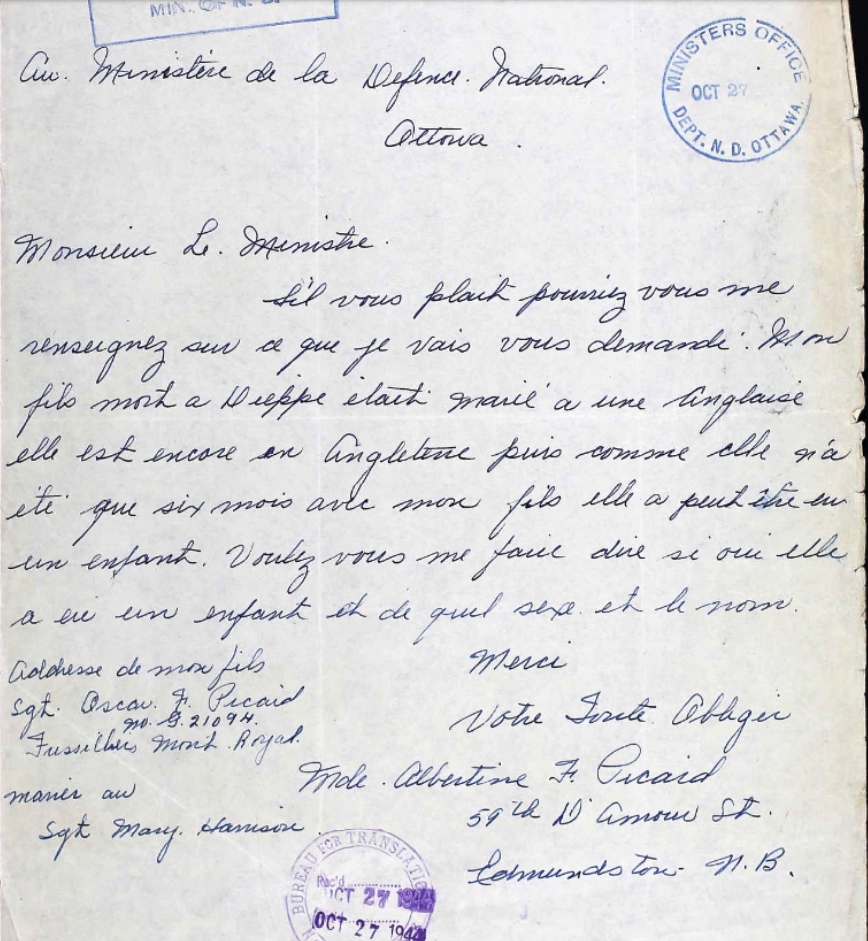 MIN. OF N.
MINISTERS OFFICE
OCT 27
DEPT. N. D. OTTAWA
Au. Ministère de la Defence. National.
Ottowa.
Monsieur Le. Ministre.
S'il vous plait pourriez vous me
renseignez sur ce que je vais vous demandé. Mon
fils mort a Dieppe étaiti marié a une Anglaise
elle est encore en Angleterre puis comme elle n'a
été que six mois avec mon fils elle a peut être eu
un enfant. Voulez vous me faire dire si oui elle
a eu un enfant et de quel sexe. et le nom.
Merci
Votre Toute Obliger
Mde. Albertine F. Picard
59th D'Amour St.
Edmundston. N.B.
Addresse de mon fils
Sgt. Oscar. F. Picard
no. G.21094.
Fussilliers Mont. Royal.
marier au
Sgt Mary. Harrison.
BUREAU FOR TRANSLATION
Rec'd
OCT 27 1944
OCT 27 1944